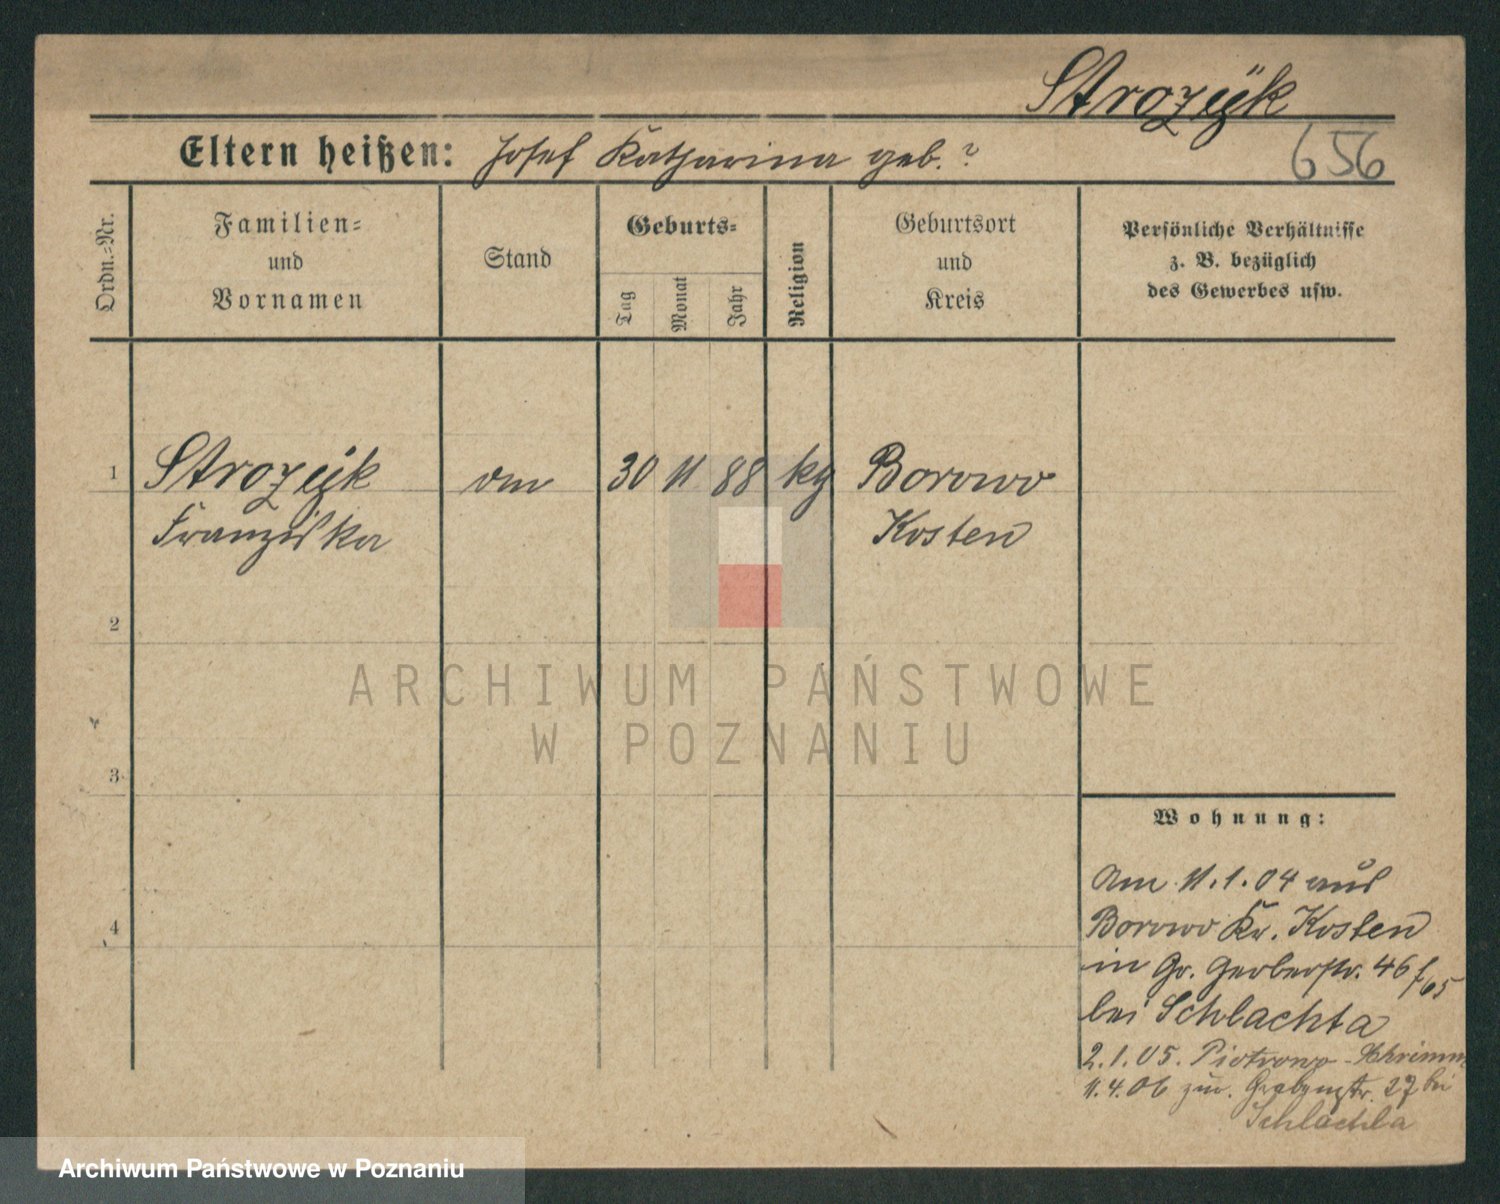 Strozÿk
Eltern heißen: Josef Katharina geb. ?
656
Ordn.=Nr.
Familien=
und
Vornamen
Stand
Geburts=
Tag
Monat
Jahr
Religion
Geburtsort
und
Kreis
Persönliche Verhältnisse
z. B. bezüglich
des Gewerbes usw.
1 Strozÿk 30 11 88 Borowo
Franziska Kosten
2
3
4
Wohnung:
Am 11.1.04 aus
Borowo Kr. Kosten
in Gr. Gerberstr. 46
bei Schlachta
2.1.05. Piotrowo
11.4.06 zur. Grabenstr. 27 bei
Schlachta
ARCHIWUM PAŃSTWOWE
W POZNANIU
Archiwum Państwowe w Poznaniu